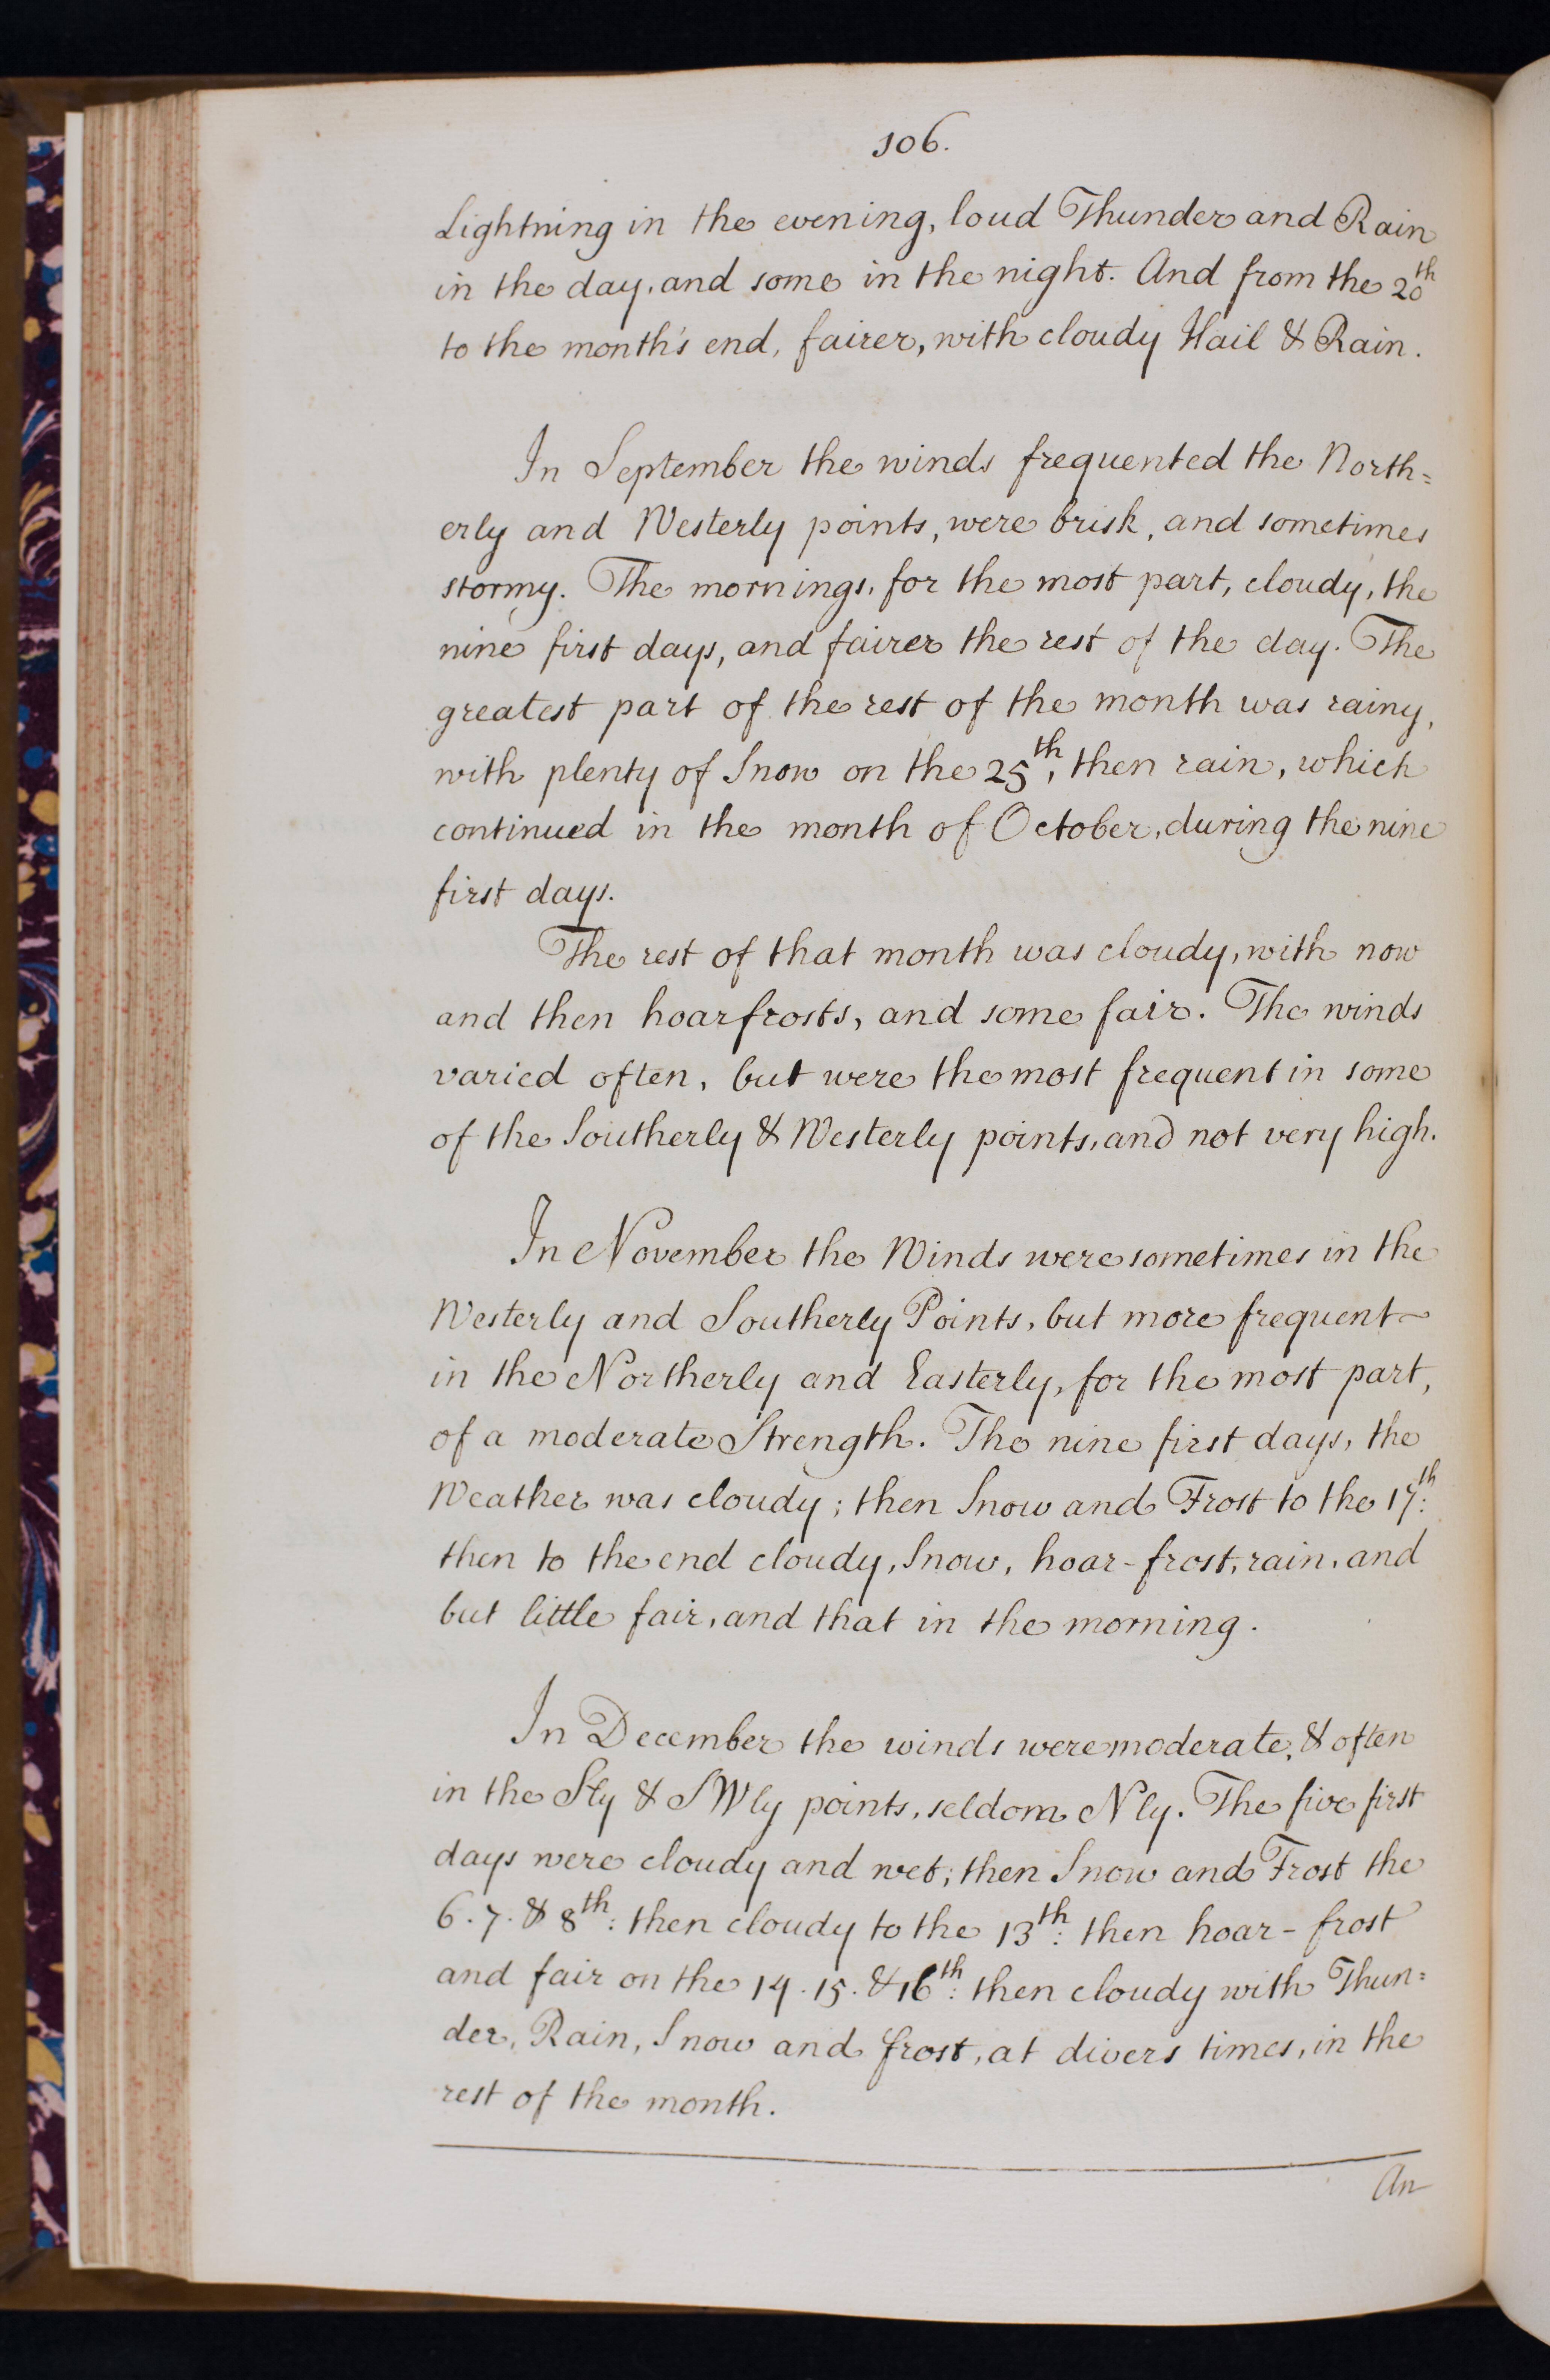 106.
Lightning in the evening, loud Thunder and Rain
in the day, and some in the night. And from the 20th
to the month's end, fairer, with cloudy Hail & Rain.
In September the winds frequented the North=
erly and Westerly points, were brisk, and sometimes
stormy. The mornings, for the most part, cloudy, the
nine first days, and fairer the rest of the day. The
greatest part of the rest of the month was rainy,
with plenty of Snow on the 25th, then rain, which
continued in the month of October, during the nine
first days.
The rest of that month was cloudy, with now
and then hoarfrosts, and some fair. The winds
varied often, but were the most frequent in some
of the Southerly & Westerly points, and not very high.
In November the Winds were sometimes in the
Westerly and Southerly Points, but more frequent
in the Northerly and Easterly, for the most part,
of a moderate Strength. The nine first days, the
Weather was cloudy; then Snow and Frost to the 17th:
then to the end cloudy, Snow, hoar-frost, rain, and
but little fair, and that in the morning.
In December the winds were moderate, & often
in the Sly & SWly points, seldom Nly. The five first
days were cloudy and wet; then Snow and Frost the
6. 7. & 8th: then cloudy to the 13th: then hoar-frost
and fair on the 14. 15. & 16th: then cloudy with Thun=
der, Rain, Snow and frost, at divers times, in the
rest of the month.
An